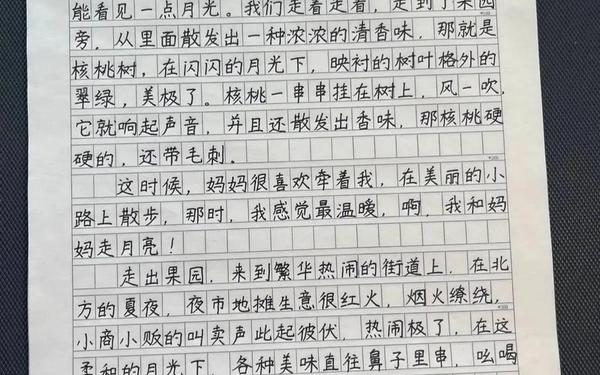 能看见一点月光。我们走着走着，走到了果园
旁，从里面散发出一种浓浓的清香味，那就是
核桃树，在闪闪的月光下，映衬的树叶格外的
翠绿，美极了。核桃一串串挂在树上，风一吹，
它就响起声音，并且还散发出香味，那核桃硬
硬的，还带毛刺。
这时候，妈妈很喜欢牵着我，在美丽的小
路上散步，那时，我感觉最温暖，啊，我和妈
妈走月亮！
走出果园，来到繁华热闹的街道上，在北
方的夏夜，夜市地摊生意很红火，烟火缭绕，
小商小贩的叫卖声此起彼伏，热闹极了，在这
柔和的月光下，各种美味直往鼻子里串，吆喝